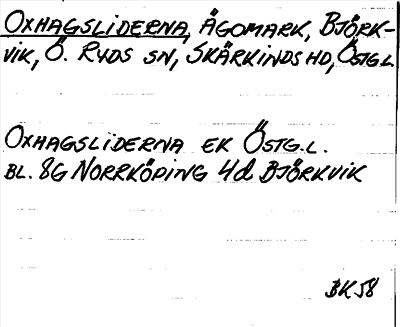 OXHAGSLIDERNA, ÄGOMARK, BJÖRK-
VIK, Ö. RYDS SN, SKÄRKINDS HD, ÖSTG.L
OXHAGSLIDERNA EK ÖSTG.L.
BL. 8G NORRKÖPING 4d BJÖRKVIK
BK58